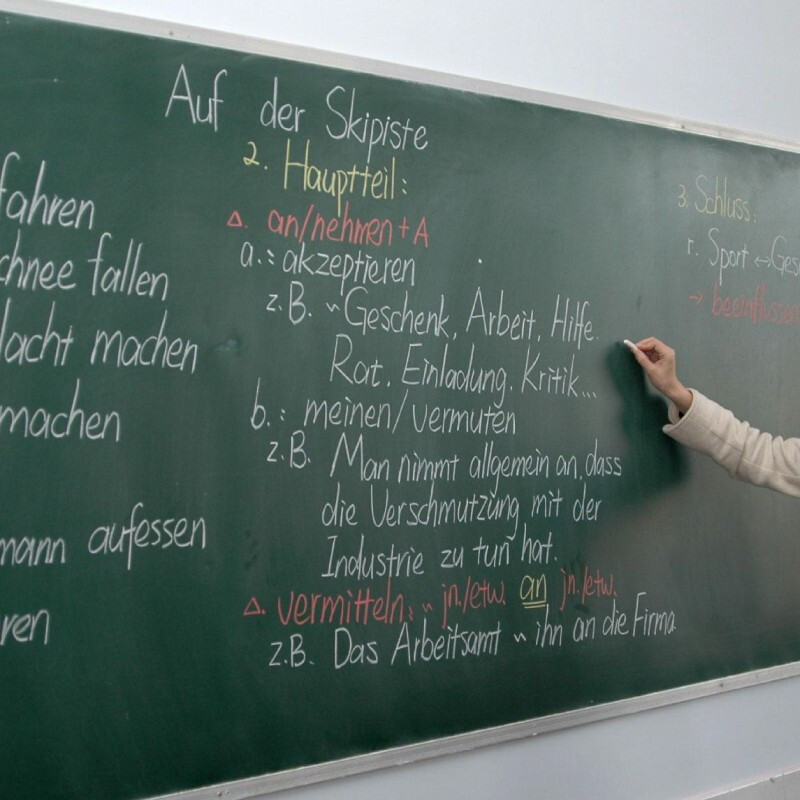 Auf der Skipiste
fahren
fallen
machen
machen
aufessen
2. Hauptteil:
△. an/nehmen + A
a.: akzeptieren
z.B. ~Geschenk, Arbeit, Hilfe.
Rat, Einladung, Kritik...
b.: meinen/vermuten
z.B. Man nimmt allgemein an, dass
die Verschmutzung mit der
Industrie zu tun hat.
△. vermitteln: ~ jn./etw. an jn./etw.
z.B. Das Arbeitsamt ~ ihn an die Firma
3. Schluss:
r. Sport ↔
→ beeinflussen